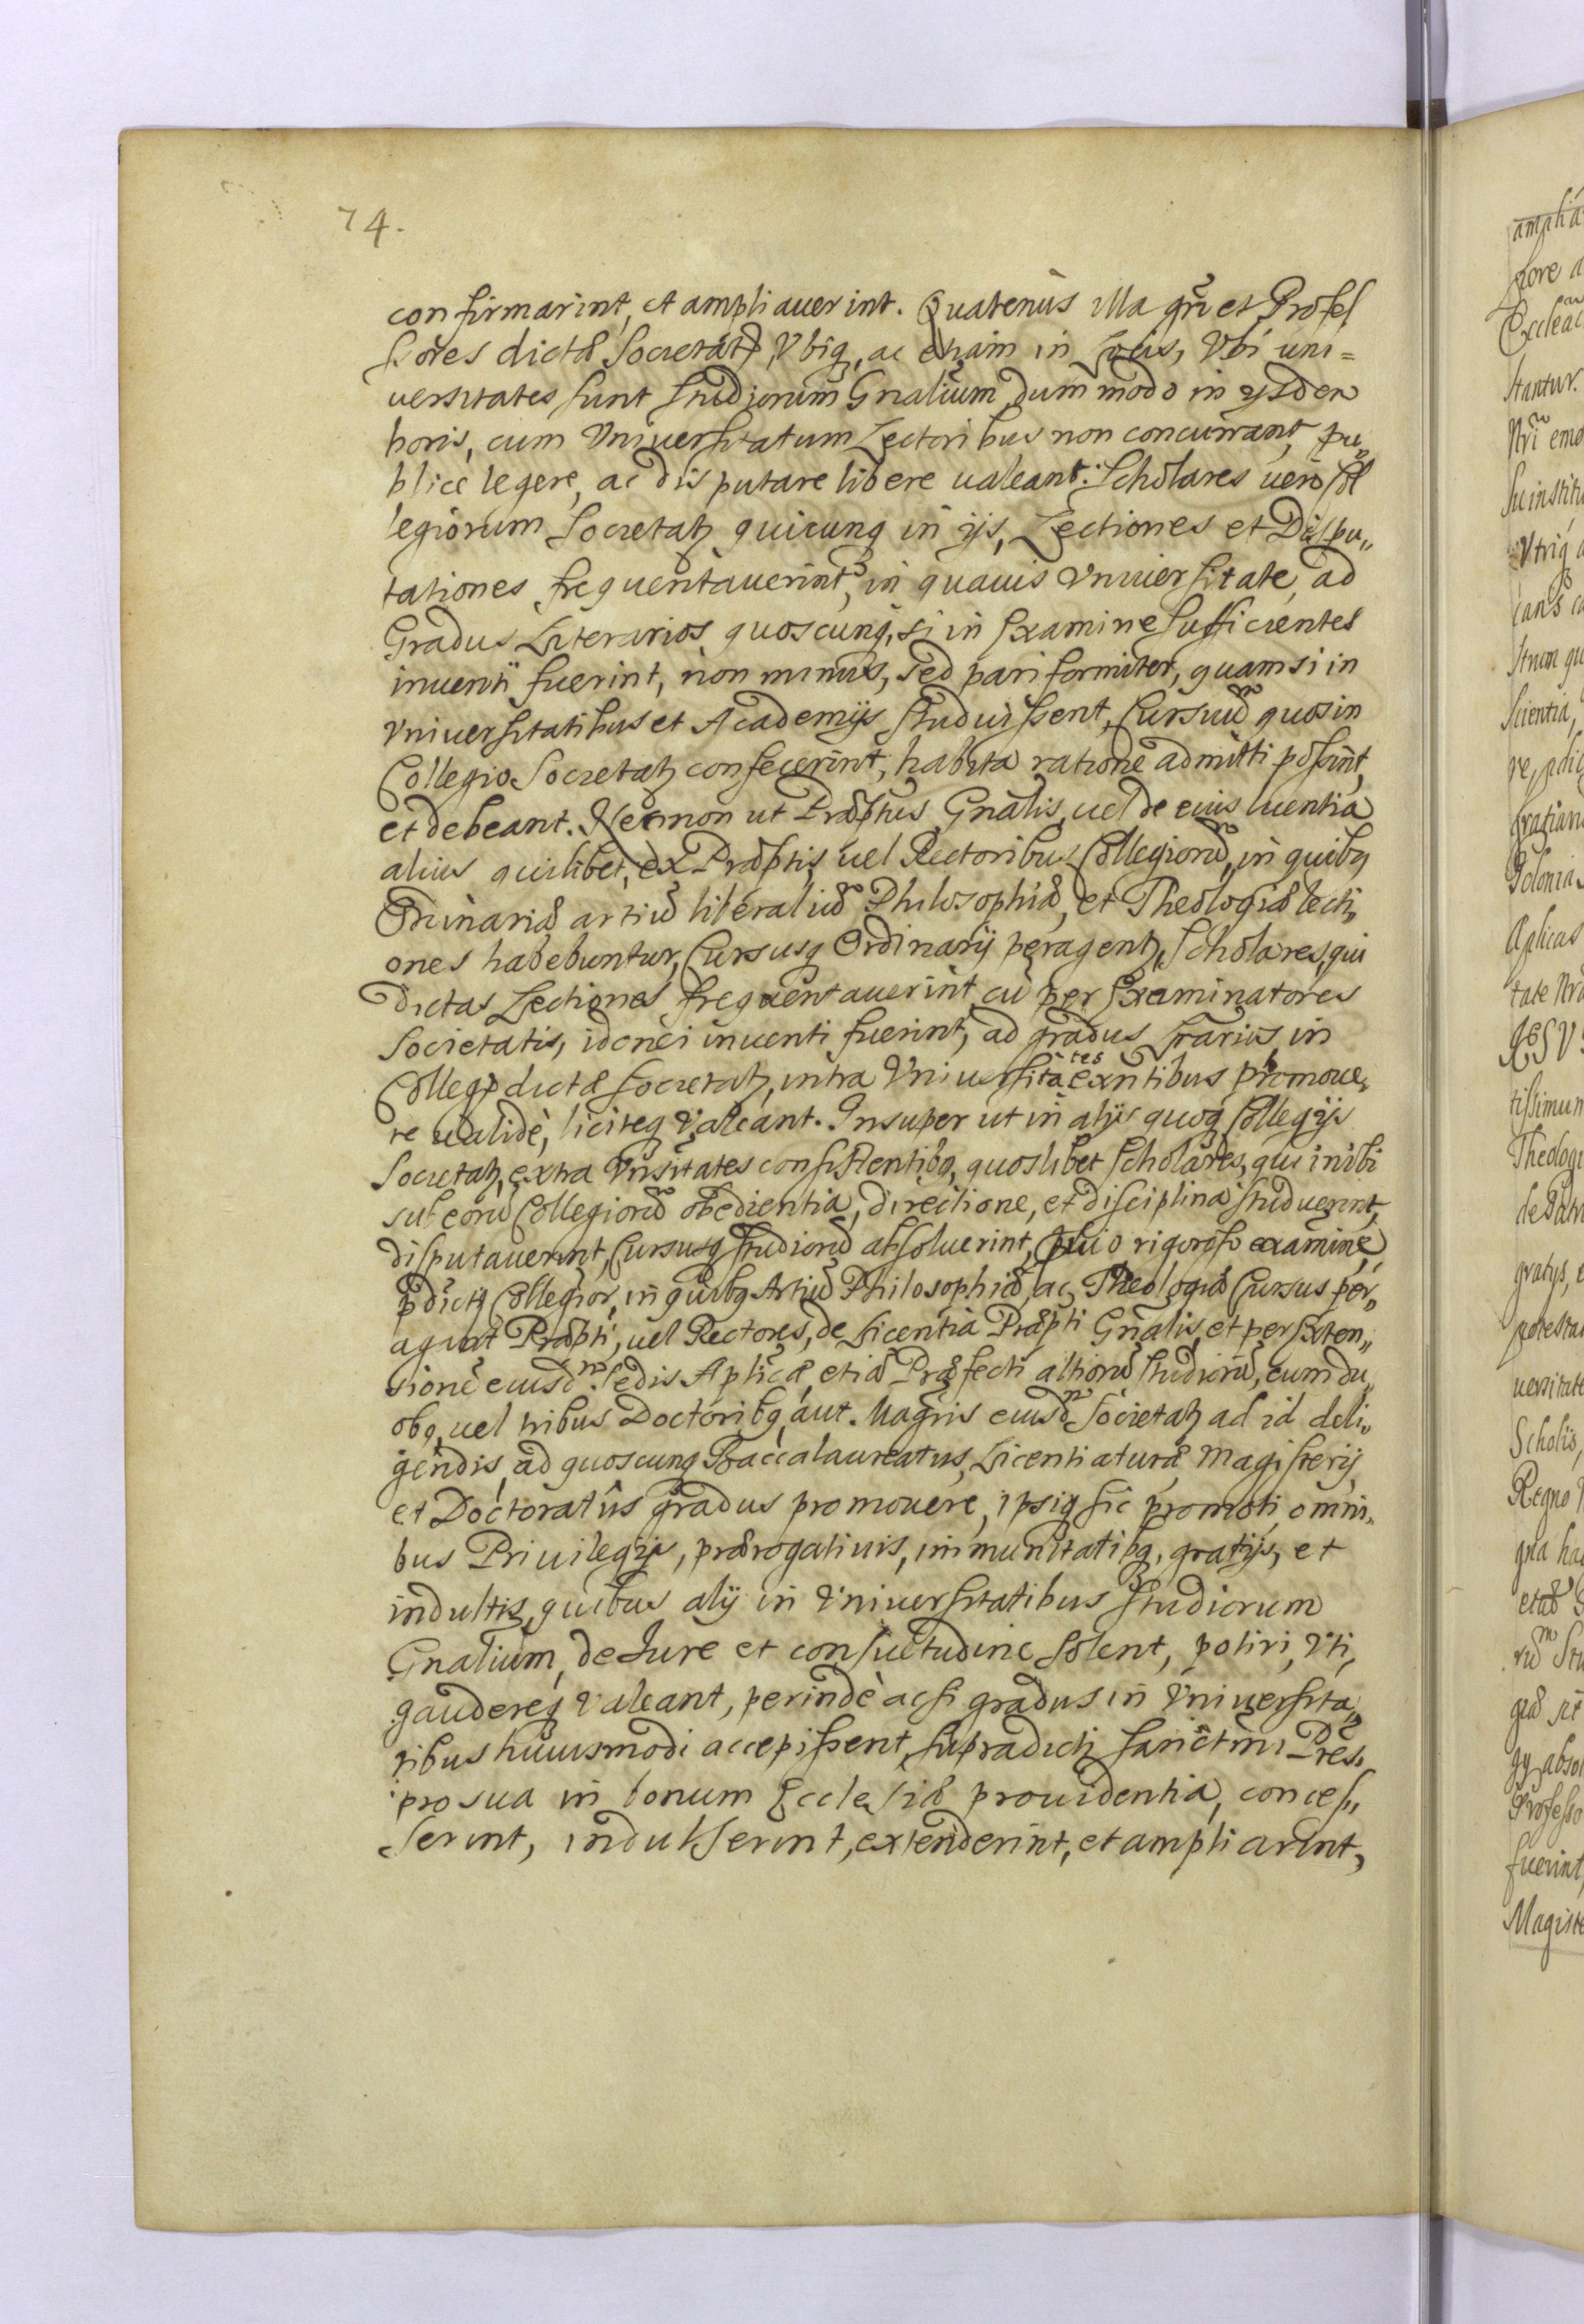 74.
confirmarint, et ampliauerint. Quatenùs illa gr̃i et Profes
sores dictæ Societatis, Vbiq, ac etiam in Locis, Vbi uni=
uersitates sunt studiorum Gnalium, dummodo in ijsdem
horis, cum Vniuersitatum Lectoribus non concurrant, pu„
blice legere, ac disputare libere ualeant. Scholares uerò Col
legiorum Societatz quicunq in ijs, Lectiones et Dispu„
tationes frequentauerint, in quauis Vniuersitate, ad
Gradus Literarios quoscunq, si in Examine sufficientes
inuenti fuerint, non minus, sed pariformiter, quam si in
Vniuersitatibus et Academijs studuissent, Cursuũ quos in
Collegio Societatz confecerint, habita ratione admitti possint,
et debeant. Necnon ut Præptus Gnalis, uel de eius licentia
alius quilibet, ex Præptis, uel Rectoribus Collegiorũ, in quibq
Ordinariæ artiũ liberaliũ Philosophiæ, et Theologiæ lecti„
ones habebuntur, Cursusq Ordinarij peragentz, Scholares, qui
dictas Lectiones frequentauerint, cũ per Examinatores
Societatis, idonei inuenti fuerint, ad gradus Lrarios in
Collegẽ dictæ Societatz, intra Vniuersitates exñtibus promoue„
re ualidè, liciteq Valeant. Insuper ut in alijs quoq Collegijs
Societatz, extra Vnsitates consistentibq, quoslibet Scholares, qui inibi
sub eorũ Collegiorũ obedientia, directione, et disciplina studuerint,
disputauerint, Cursusq studiorũ absoluerint, p̃uio rigoroso examine,
p̃dictz Collegior, in quibq Artiũ Philosophiæ, ac Theologiæ Cursus per„
agunt Præpti, uel Rectores, de Licentia Præpti Gnalis, et per Exten„
sionẽ eiusdm Sedis Aplicæ, etiã Præfecti altiorũ studiorũ, cum du„
obq, uel tribus Doctoribq, aut Magris eiusdm Societatz ad id deli„
gendis, ad quoscunq Baccalaureatus, Licentiaturæ, Magisterij,
et Doctoratûs gradus promouere, ipsiq sic promoti, omni„
bus Priuilegijs, prærogatiuis, immunitatibq, gratijs, et
indultis, quibus alij in Vniuersitatibus Studiorum
Gnalium, de Iure et consuetudine solent, potiri, Vti,
gaudereq Valeant, perindè ac si gradus in Vniuersita„
tibus huiusmodi accepissent, supradictz sanctmi Pres,
pro sua in bonum Ecclesiæ prouidentia, conces„
serint, indulserint, extenderint, et ampliarint,